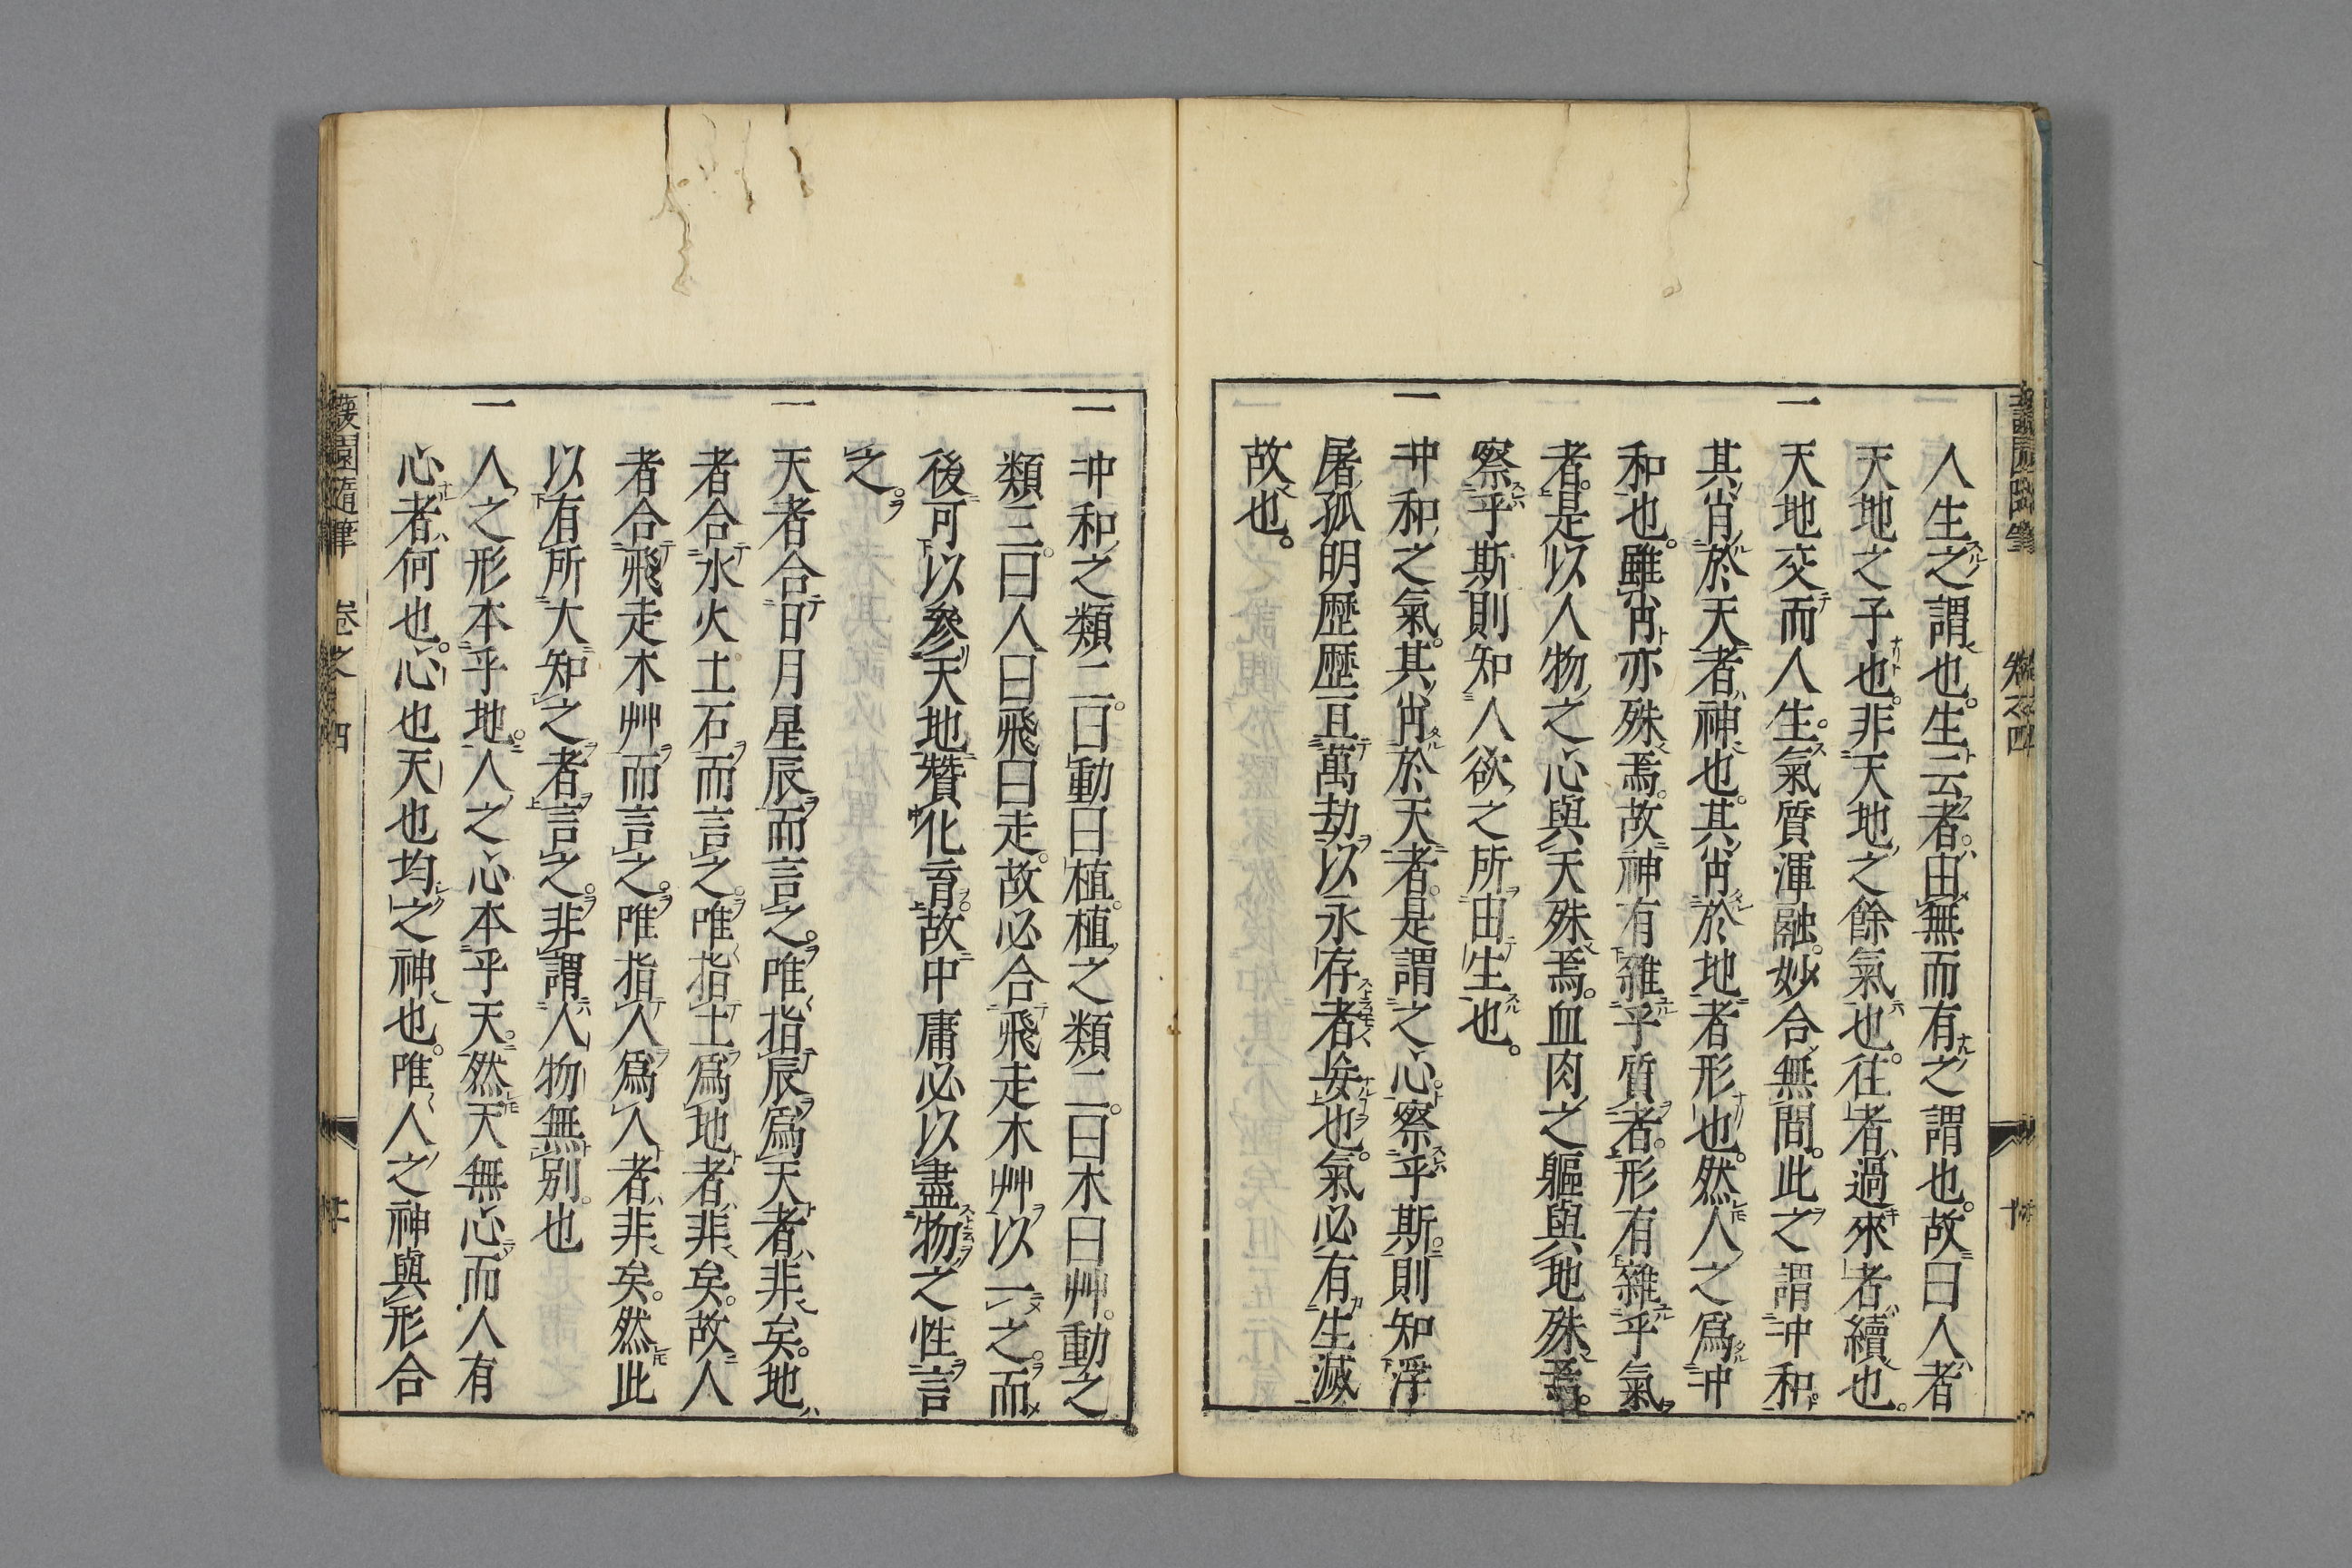 人生之謂也。生云者。由無而有之謂也。故曰人者
天地之子也。非天地之餘氣也。往者過來者續也。
一天地交而人生。氣質渾融。妙合無間。此之謂沖和。
其肖於天者神也。其肖於地者形也。然人之爲沖
和也。雖肖亦殊焉。故神有雜乎質者。形有雜乎氣
者。是以人物之心與天殊焉。血肉之軀與地殊焉。
察乎斯則知人欲之所由生也。
一沖和之氣。其肖於天者。是謂之心。察乎斯。則知浮
屠孤明歷歷亘萬劫以永存者妄也。氣必有生滅
故也。
一沖和之類二。曰動曰植。植之類二。曰木曰艸。動之
類三。曰人曰飛曰走。故必合飛走木艸以一之。而
後可以參天地贊化育。故中庸必以盡物之性言
之。
一天者合日月星辰而言之。唯指辰爲天者非矣。地
者合水火土石而言之。唯指土爲地者非矣。故人
者合飛走木艸而言之。唯指人爲人者非矣。然此
以有所大知之者言之。非謂人物無別也
一人之形本乎地。人之心本乎天。然天無心而人有
心者何也。心也天也均之神也。唯人之神與形合
蘐園隨筆 卷之四